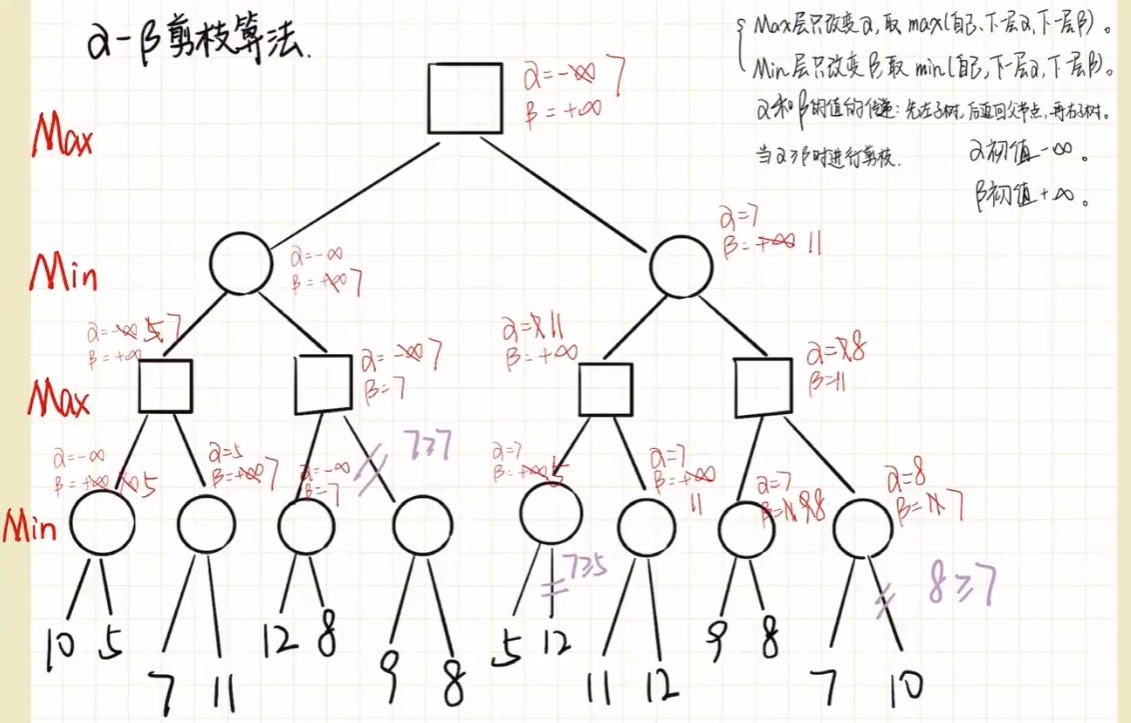 α-β剪枝算法.
Max层只改变α,取max(自己,下一层α,下一层β)。
Min层只改变β,取min(自己,下一层α,下一层β)。
α和β的值的传递:先左子树,后返回父节点,再右子树。
当α≥β时进行剪枝.
α初值-∞。
β初值+∞。
α=-∞ 7
β=+∞
Max
α=-∞
β=+∞ 7
α=7
β=+∞ 11
Min
α=-∞ 5 7
β=+∞
α=-∞ 7
β=7
α=7 11
β=+∞
α=7 8
β=11
Max
α=-∞
β=+∞ 10 5
α=5
β=+∞ 7
α=-∞
β=7
7≥7
α=7
β=+∞ 5
α=7
β=+∞
11
α=7
β=11 9 8
α=8
β=11 7
Min
7≥5
8≥7
10 5
7 11
12 8
9 8
5 12
11 12
9 8
7 10